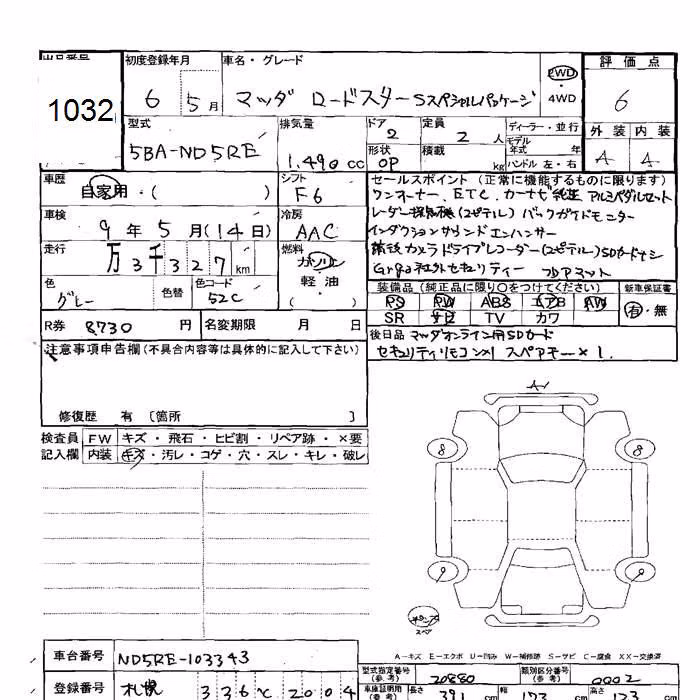 初度登録年月 車名・グレード 評価点
1032 6 5月 マツダ ロードスターSスペシャルパッケージ 2WD・4WD 6
型式 排気量 ドア 2 定員 2人 ディーラー・並行 外装 内装
5BA-ND5RE 1.490cc 形状 OP 積載 kg モデル年式 年式 ハンドル 左・右 A A
車歴 自家用・( ) シフト F6
セールスポイント(正常に機能するものに限ります)
ワンオーナー、ETC、カーナビ 純正 アルミペダルセット
車検 9年5月(14日) 冷房 AAC
レーダー探知機(ユピテル) バックガイドモニター
インダクションサウンドエンハンサー
走行 万3千327km 燃料 ガソリン 軽・油
前後カメラドライブレコーダー(ユピテル)SDカードナシ
Grgo社外セキュリティー フロアマット
色 グレー 色替 色コード 52C
装備品(純正品に限り○をつけてください) 新車保証書
PS PW ABS エアB AW 有・無
R券 8730円 名変期限 月 日 SR ナビ TV カワ
後日品 マツダオンライン用SDカード
セキュリティリモコン×1 スペアキー×1.
注意事項申告欄(不具合内容等は具体的に記入して下さい)
修復歴 有〔箇所 〕
検査員 FW キズ・飛石・ヒビ割・リペア跡・×要
記入欄 内装 キズ・汚レ・コゲ・穴・スレ・キレ・破レ
A1
8 8
9 9
スペア
A-キズ E-エクボ U-凹み W-補修跡 S-サビ C-腐食 XX-交換済
車台番号 ND5RE-103343
型式指定番号(参考) 20880 類別区分番号(参考) 0002
登録番号 札幌 336 2004
車庫証明用(参考) 長さ 391cm 幅 173cm 高さ 123cm